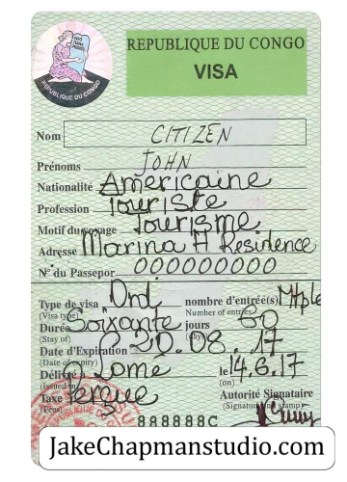 REPUBLIQUE DU CONGO
VISA
REPUBLIQUE DU CONGO
Nom CITIZEN
Prénoms JOHN
Nationalité Américaine
Profession Touriste
Motif du voyage Tourisme
Adresse Marina H Residence
N° du Passepor 000000000
Type de visa Ord. nombre d'entrée(s) Mtple
(Visa type) Number of entries
Durée Soixante jours 60
(Stay of) days
Date d'Expiration 20.08.17
(Date of expiry)
Délivré à Lome le 14.6.17
(issued in) (on)
Taxe Autorité Signataire
(Fees) (Signature and stamp)
888888C
JakeChapmanstudio.com